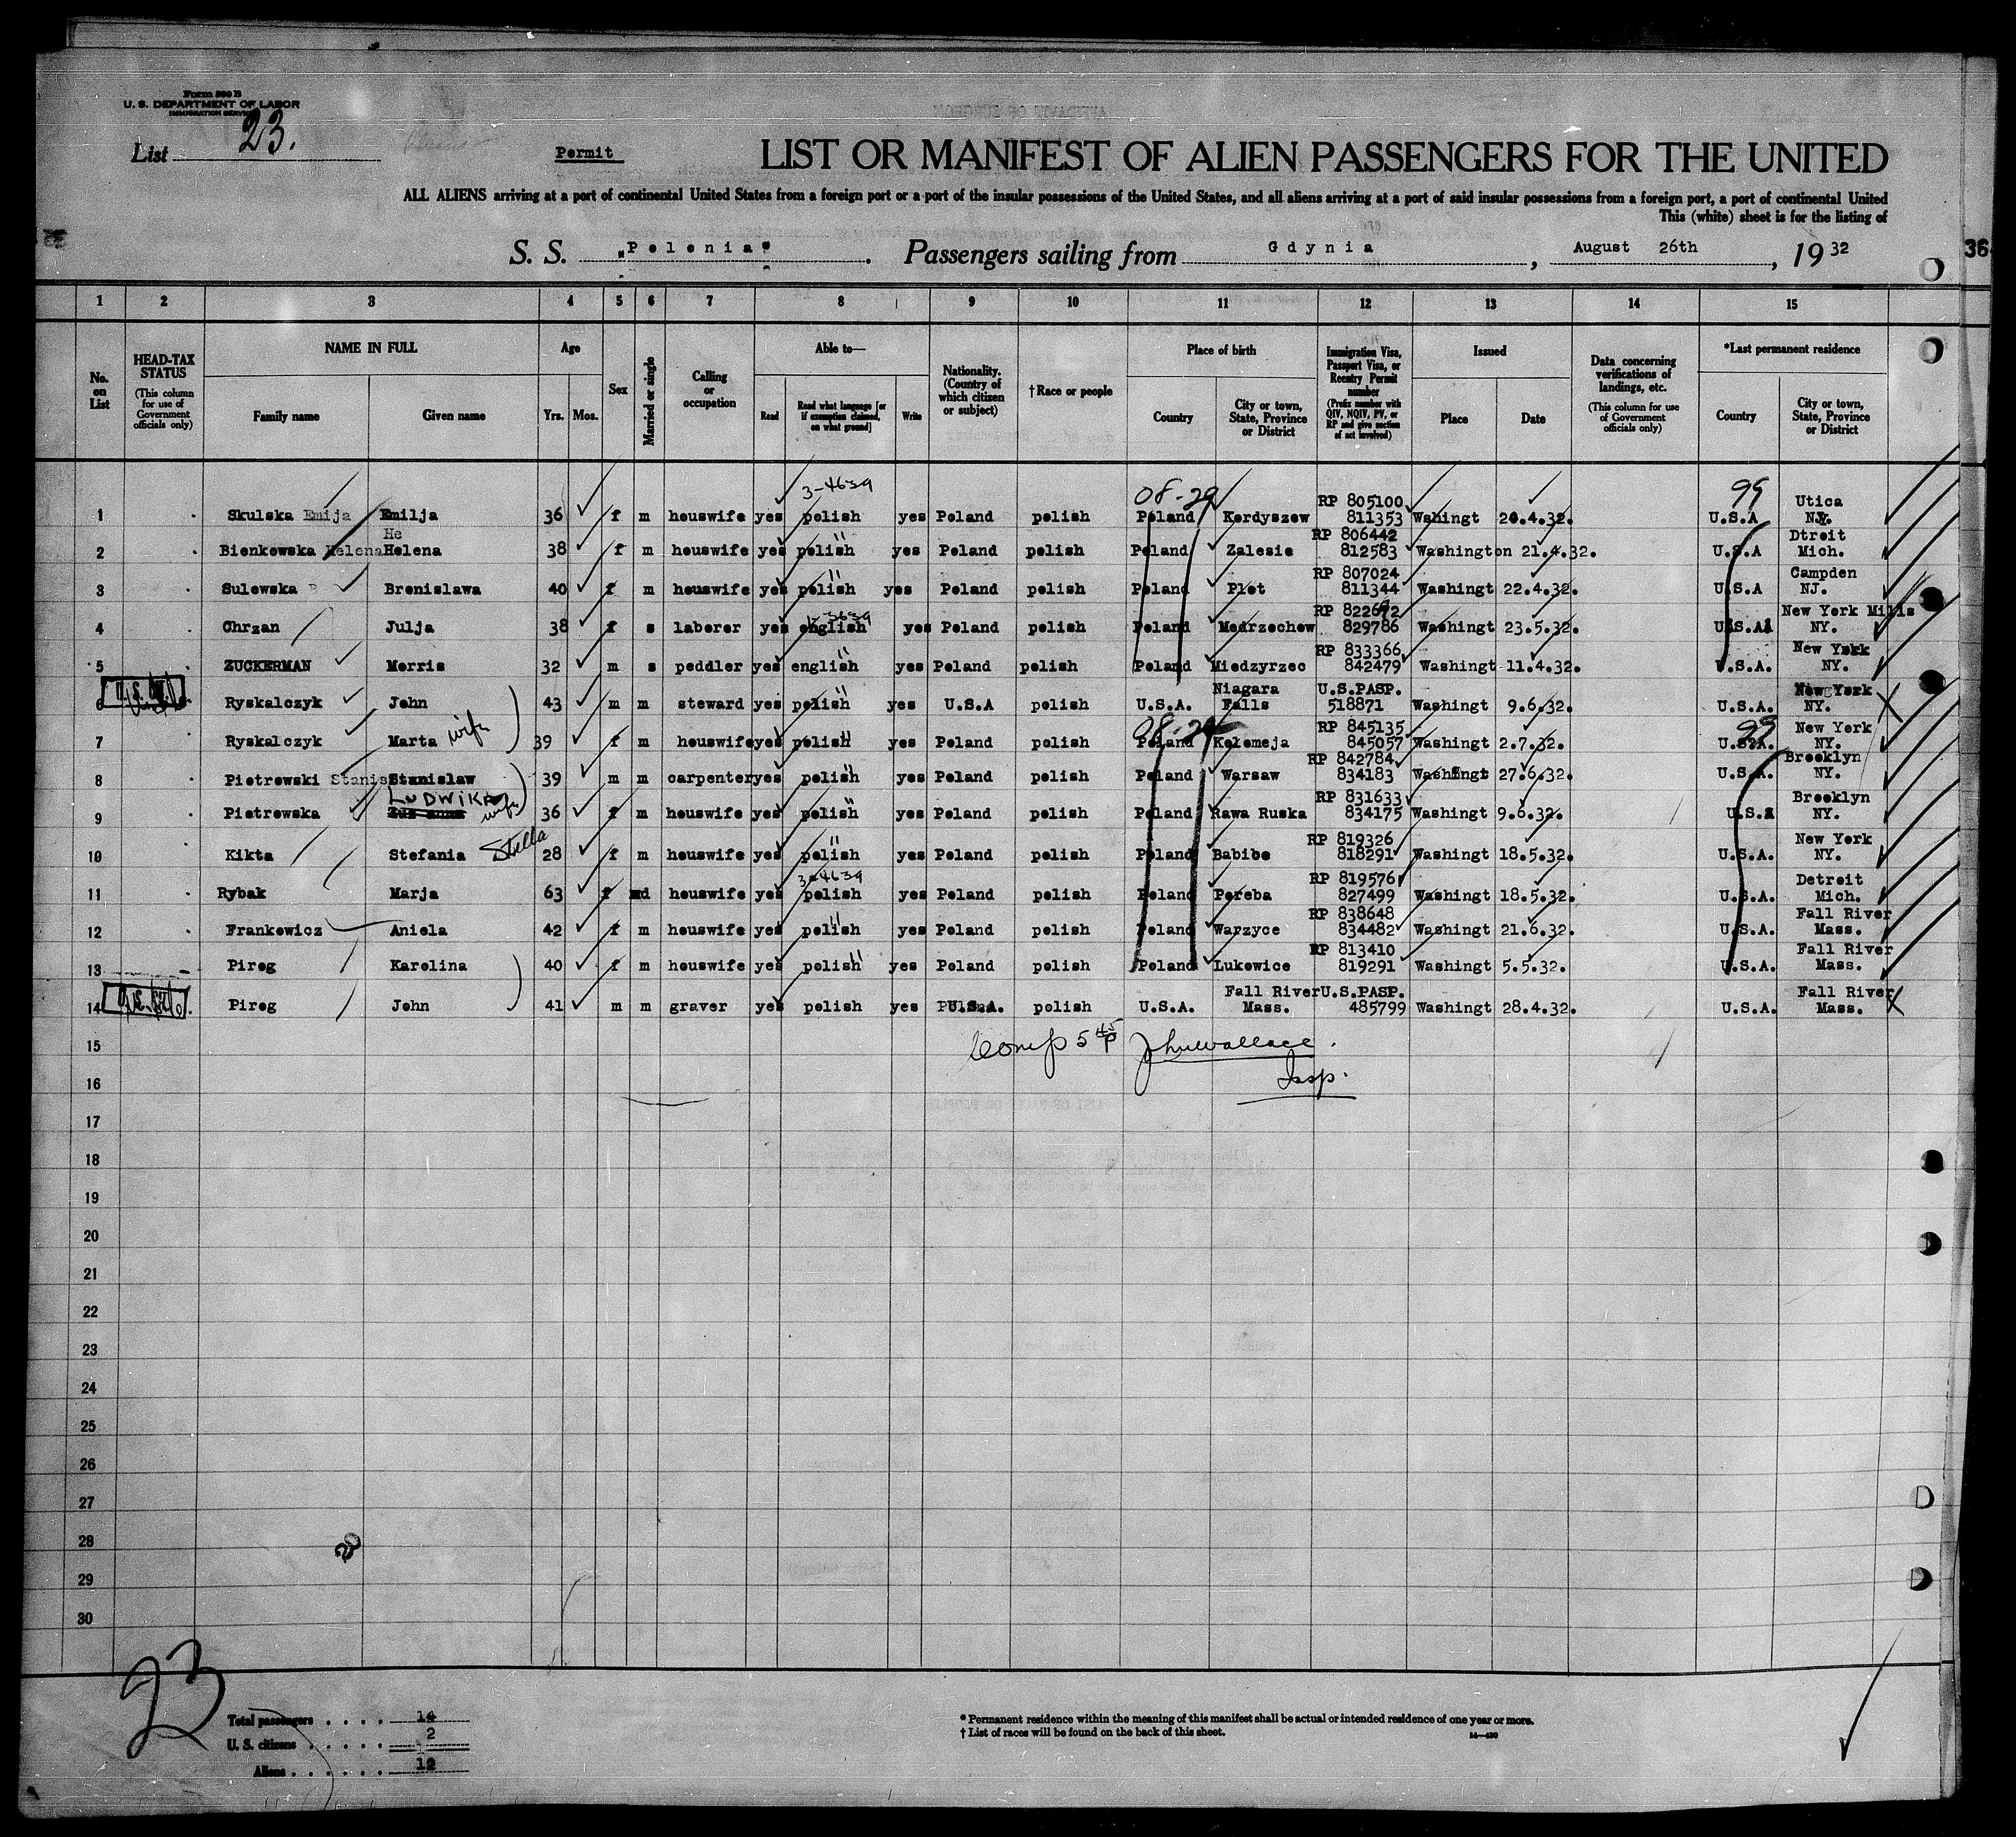 Form 500 B
U. S. DEPARTMENT OF LABOR
IMMIGRATION SERVICE
List 23.
Permit
LIST OR MANIFEST OF ALIEN PASSENGERS FOR THE UNITED
ALL ALIENS arriving at a port of continental United States from a foreign port or a port of the insular possessions of the United States, and all aliens arriving at a port of said insular possessions from a foreign port, a port of continental United
This (white) sheet is for the listing of
S. S. "Polonia". Passengers sailing from Gdynia, August 26th, 1932
36
1 2 3 4 5 6 7 8 9 10 11 12 13 14 15
No. on List
HEAD-TAX STATUS (This column for use of Government officials only)
NAME IN FULL Family name Given name
Age Yrs. Mos.
Sex
Married or single
Calling or occupation
Able to— Read Read what language [or if exemption claimed, on what ground] Write
Nationality. (Country of which citizen or subject)
† Race or people
Place of birth Country City or town, State, Province or District
Immigration Visa, Passport Visa, or Reentry Permit number (Prefix number with QIV, NQIV, PV, or RP and give section of act involved)
Issued Place Date
Data concerning verifications of landings, etc. (This column for use of Government officials only)
*Last permanent residence Country City or town, State, Province or District
3-4639 08-29 RP 805100 99 Utica
1 Skulska Emija Emilja 36 f m houswife yes polish yes Poland polish Poland Kordyszow 811353 Wshingt 20.4.32. U.S.A NY.
He RP 806442 Dtroit
2 Bienkowska Helena Helena 38 f m houswife yes polish " yes Poland polish Poland Zalesie 812583 Washington 21.4.32. U.S.A Mich.
RP 807024 Campden
3 Sulewska B Bronislawa 40 f m houswife yes polish " yes Poland polish Poland Plot 811344 Washingt 22.4.32. U.S.A NJ.
3639 RP 822692 New York Mills
4 Chrzan Julja 38 f s laborer yes english yes Poland polish Poland Medrzechow 829786 Washingt 23.5.32. U.S.A. NY.
RP 833366 New York
5 ZUCKERMAN Morris 32 m s peddler yes english " yes Poland polish Poland Miedzyrzec 842479 Washingt 11.4.32. U.S.A. NY.
Niagara U.S.PASP. New York
6 Ryskalczyk John 43 m m steward yes polish " yes U.S.A polish U.S.A. Falls 518871 Washingt 9.6.32. U.S.A. NY.
08-29 RP 845135 99 New York
7 Ryskalczyk Marta wife 39 f m houswife yes polish " yes Poland polish Poland Kolomeja 845057 Washingt 2.7.32. U.S.A. NY.
RP 842784 Brooklyn
8 Pietrowski Stanis Stanislaw 39 m m carpenter yes polish " yes Poland polish Poland Warsaw 834183 Washingt 27.6.32. U.S.A. NY.
LUDWIKA RP 831633 Brooklyn
9 Pietrowska wife 36 f m houswife yes polish " yes Poland polish Poland Rawa Ruska 834175 Washingt 9.6.32. U.S.A NY.
RP 819326 New York
10 Kikta Stefania Stella 28 f m houswife yes polish " yes Poland polish Poland Babibe 818291 Washingt 18.5.32. U.S.A. NY.
3-4639 RP 819576 Detroit
11 Rybak Marja 63 f wd houswife yes polish yes Poland polish Poland Poreba 827499 Washingt 18.5.32. U.S.A. Mich.
RP 838648 Fall River
12 Frankowicz Aniela 42 f m houswife yes polish " yes Poland polish Poland Warzyce 834482 Washingt 21.6.32. U.S.A. Mass.
RP 813410 Fall River
13 Pirog Karolina 40 f m houswife yes polish " yes Poland polish Poland Lukowice 819291 Washingt 5.5.32. U.S.A. Mass.
Fall River U.S.PASP. Fall River
14 Pirog John 41 m m graver yes polish yes U.S.A. polish U.S.A. Mass. 485799 Washingt 28.4.32. U.S.A. Mass.
15 Comp 5 45 P Jhnwallace.
16 Insp.
17
18
19
20
21
22
23
24
25
26
27
28
29
30
23
Total passengers . . . . 14
U. S. citizens . . . . . 2
Aliens . . . . . . 12
* Permanent residence within the meaning of this manifest shall be actual or intended residence of one year or more.
† List of races will be found on the back of this sheet.